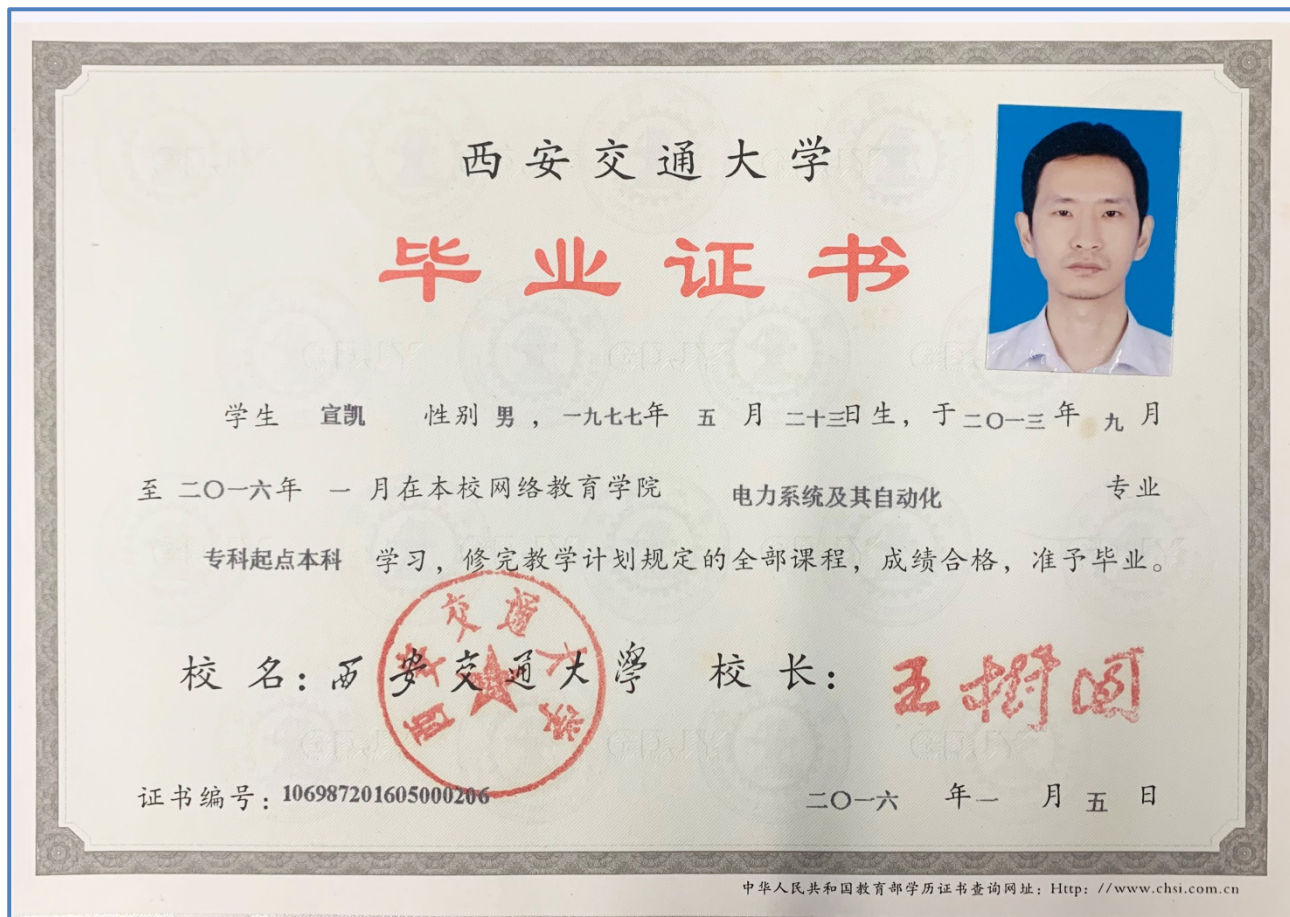 西安交通大学
毕业证书
学生 宣凯 性别 男，一九七七年 五 月 二十三日生，于二〇一三年 九 月
至 二〇一六年 一 月在本校网络教育学院 电力系统及其自动化 专业
专科起点本科 学习，修完教学计划规定的全部课程，成绩合格，准予毕业。
西安交通大学
校 名：西安交通大學 校 长：王樹国
证书编号：106987201605000206 二〇一六 年 一 月 五 日
中华人民共和国教育部学历证书查询网址：Http: //www.chsi.com.cn